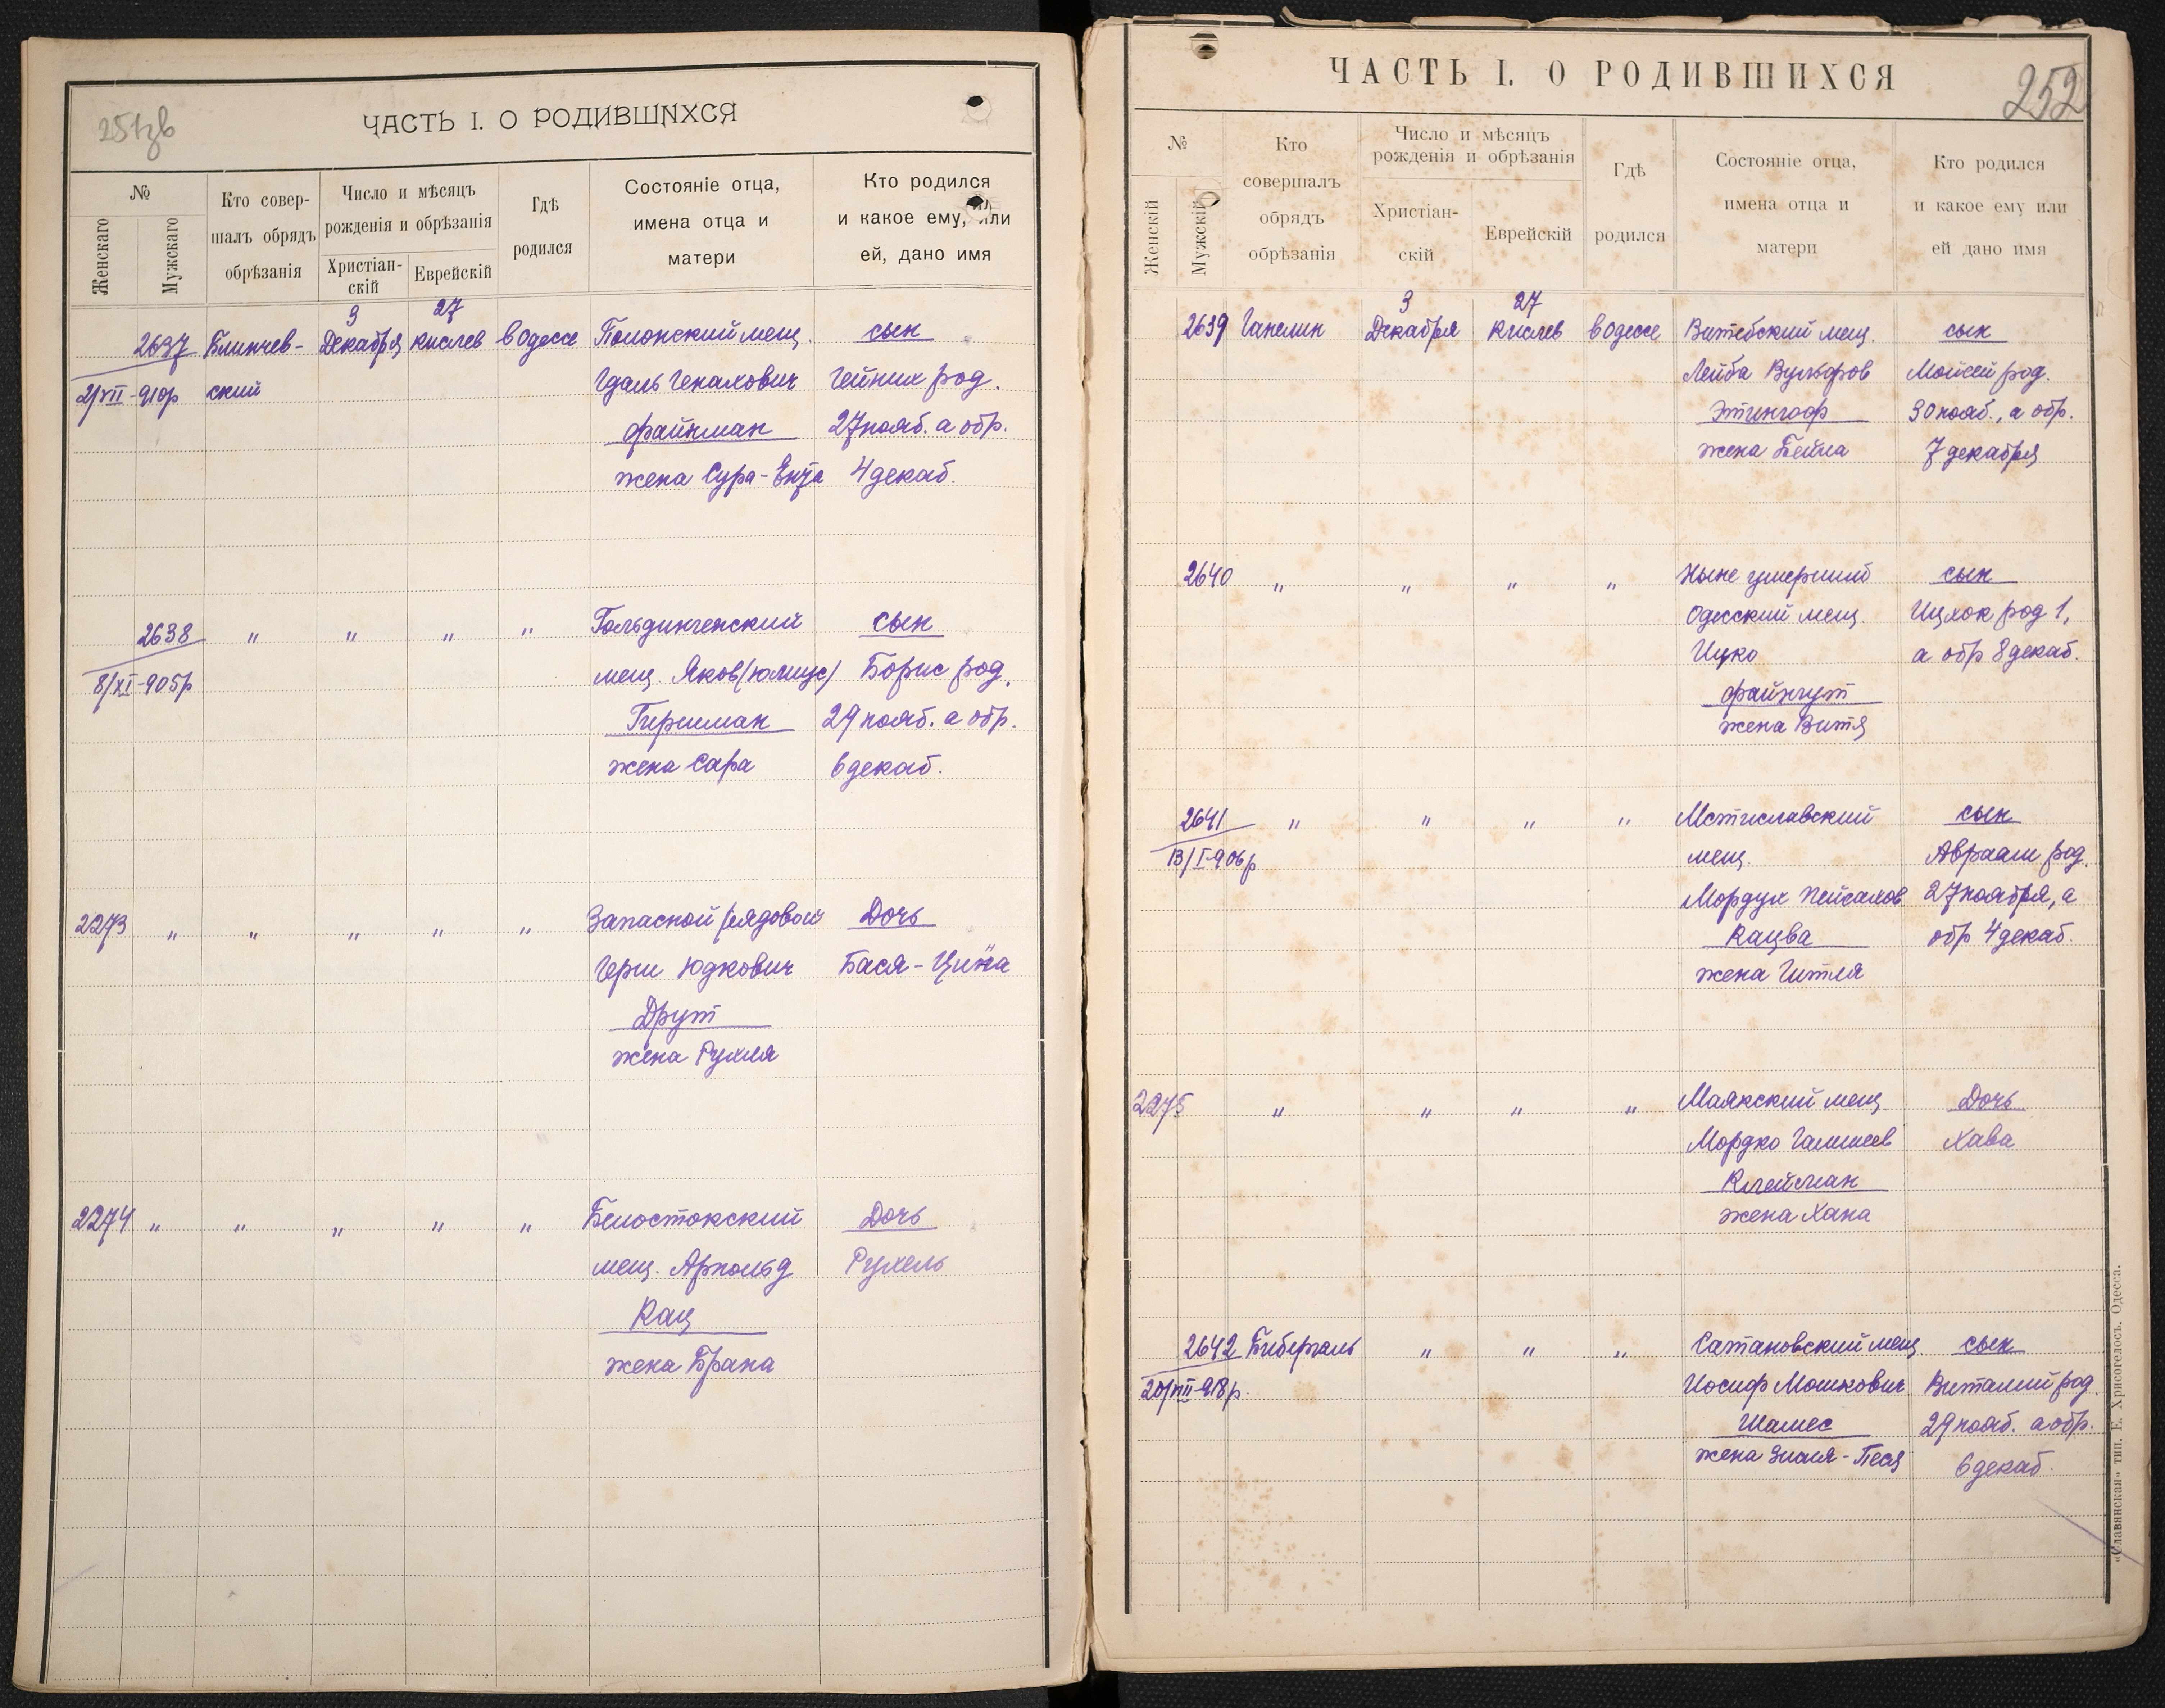 251зв
ЧАСТЬ I. О РОДИВШИХСЯ
№
Женскаго
Мужскаго
Кто совер-
шалъ обрядъ
обрѣзанія
Число и мѣсяцъ
рожденія и обрѣзанія
Христіан-
скій
Еврейскій
Гдѣ
родился
Состояніе отца,
имена отца и
матери
Кто родился
и какое ему, или
ей, дано имя
3 27
2637 Блинчев- Декабря кислев в Одессе Полонский мещ. сын
2/VII-910р ский Гдаль Генахович Гейних род.
Файнман 27 нояб. а обр.
жена Сура-Ента 4 декаб.
2638 " " " " Гольдингенский сын
8/XI-905р мещ. Яков (Юлиус) Борис род.
Гиршман 29 нояб. а обр.
жена Сара 6 декаб.
2273 " " " " " Запасной рядовой Дочь
Герш Юдкович Бася-Цина
Друт
жена Рухля
2274 " " " " " Белостокский Дочь
мещ. Арнольд Рухель
Кац
жена Брана
252
ЧАСТЬ I. О РОДИВШИХСЯ
№
Женскій
Мужскій
Кто
совершалъ
обрядъ
обрѣзанія
Число и мѣсяцъ
рожденія и обрѣзанія
Христіан-
скій
Еврейскій
Гдѣ
родился
Состояніе отца,
имена отца и
матери
Кто родился
и какое ему или
ей дано имя
3 27
2639 Ганелин Декабря Кислев в Одессе Витебский мещ. сын
Лейба Вульфов Мойсей род.
Этингоф 30 нояб., а обр.
жена Бейла 7 декабря
2640 " " " " Ныне умерший сын
Одесский мещ. Ицхок род 1,
Ицко а обр 8 декаб.
Файнгут
жена Витя
2641 " " " " Мстиславский сын
13/I-906р мещ. Авраам род.
Мордух Пейсахов 27 ноября, а
Кацва обр 4 декаб.
жена Гитля
2275 " " " " Маякский мещ Дочь
Мордко Хава
Клейман
жена Хана
2642 Бибергаль " " " Сатановский мещ. сын
20/VII-918р. Иосиф Мошкович Виталий род.
Шамес 29 нояб. а обр.
жена Зисля-Песя 6 декаб.
«Славянская» тип. Е. Хрисогелосъ. Одесса.